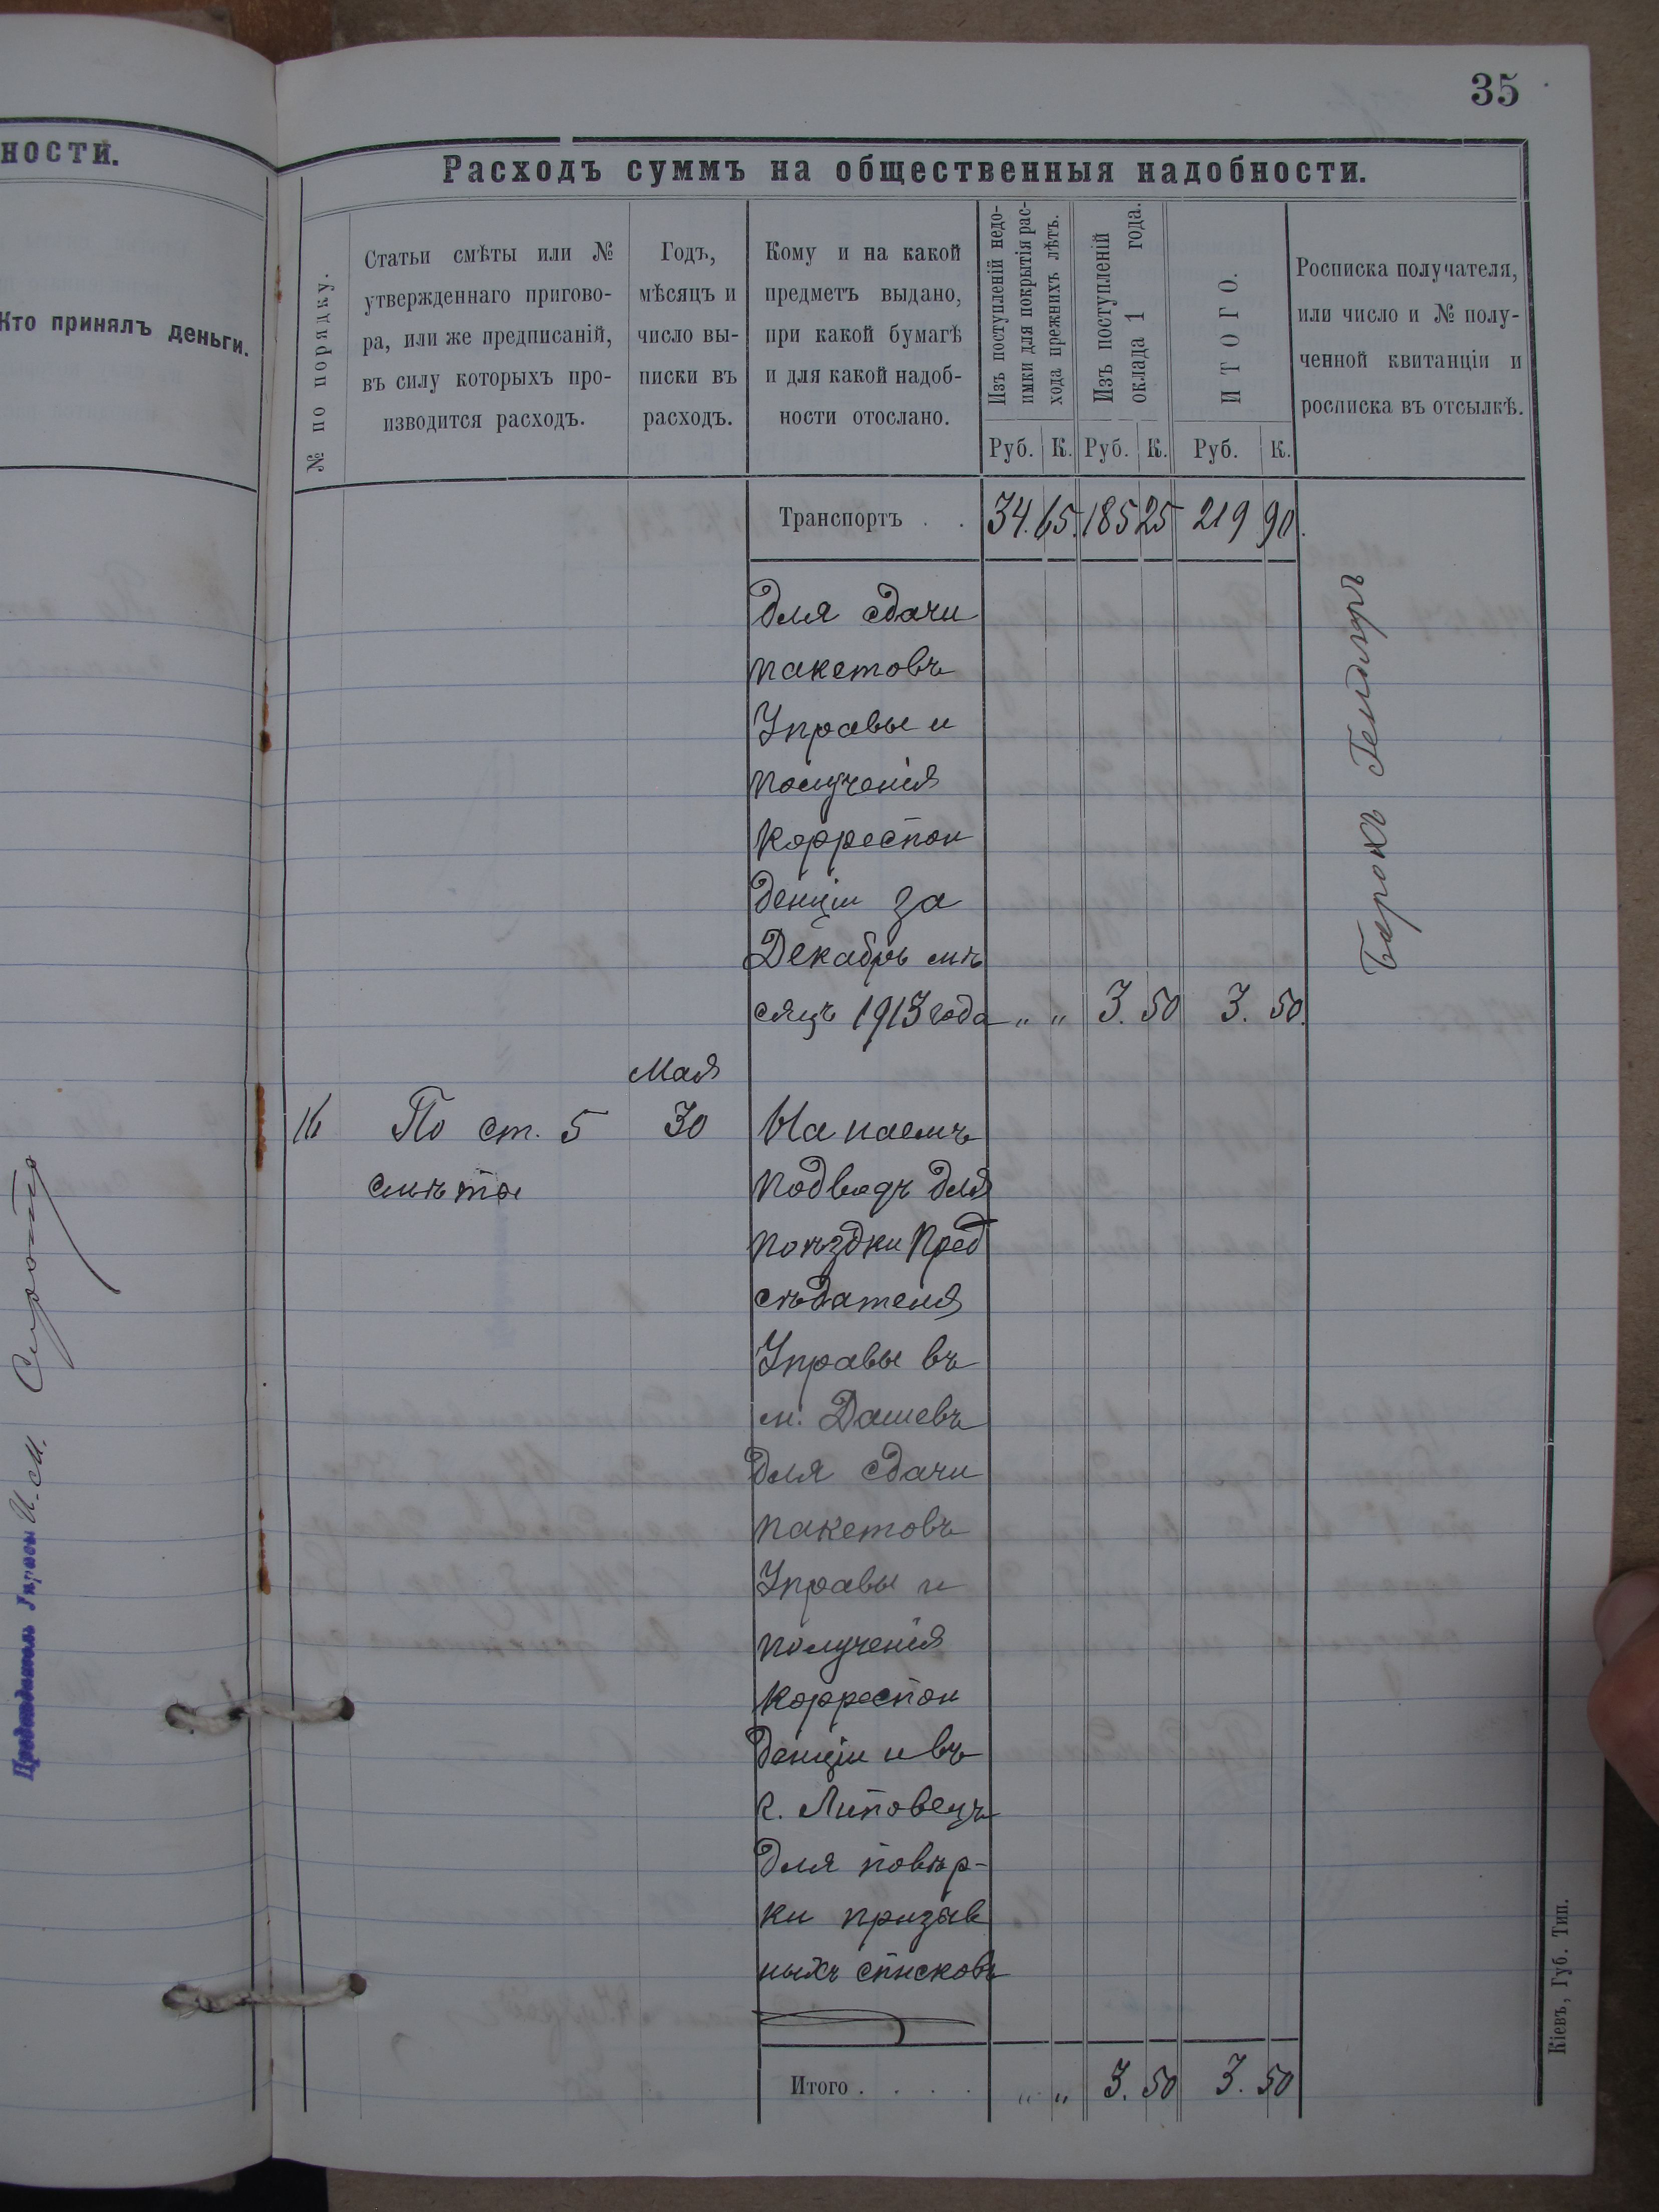 35
ности.
Кто принялъ деньги.
Предсѣдатель Управы И. М.
Расходъ суммъ на общественныя надобности.
№ по порядку.
Статьи смѣты или №
утвержденнаго пригово-
ра, или же предписаній,
въ силу которыхъ про-
изводится расходъ.
Годъ,
мѣсяцъ и
число вы-
писки въ
расходъ.
Кому и на какой
предметъ выдано,
при какой бумагѣ
и для какой надоб-
ности отослано.
Изъ поступленій недо-
имки для покрытія рас-
хода прежнихъ лѣтъ.
Изъ поступленій
оклада 1 года.
ИТОГО.
Росписка получателя,
или число и № полу-
ченной квитанціи и
росписка въ отсылкѣ.
Руб. К. Руб. К. Руб. К.
Транспортъ . . 34. 65. 185 25 219 90.
для сдачи
пакетовъ
Управы и
полученія
корреспон
денціи за
Декабрь мѣ
сяцъ 1913 года „ „ 3. 50 3. 50.
Барокъ
Мая
16 По ст. 5 30 На наемъ
смѣты подводъ для
поѣздки Пред
сѣдателя
Управы въ
м. Дашевъ
для сдачи
пакетовъ
Управы и
полученія
корреспон
денціи и въ
г. Липовецъ
для повѣр-
ки призыв
ныхъ списковъ
Итого . . . . „ „ 3. 50 3. 50
Кіевъ, Губ. Тип.